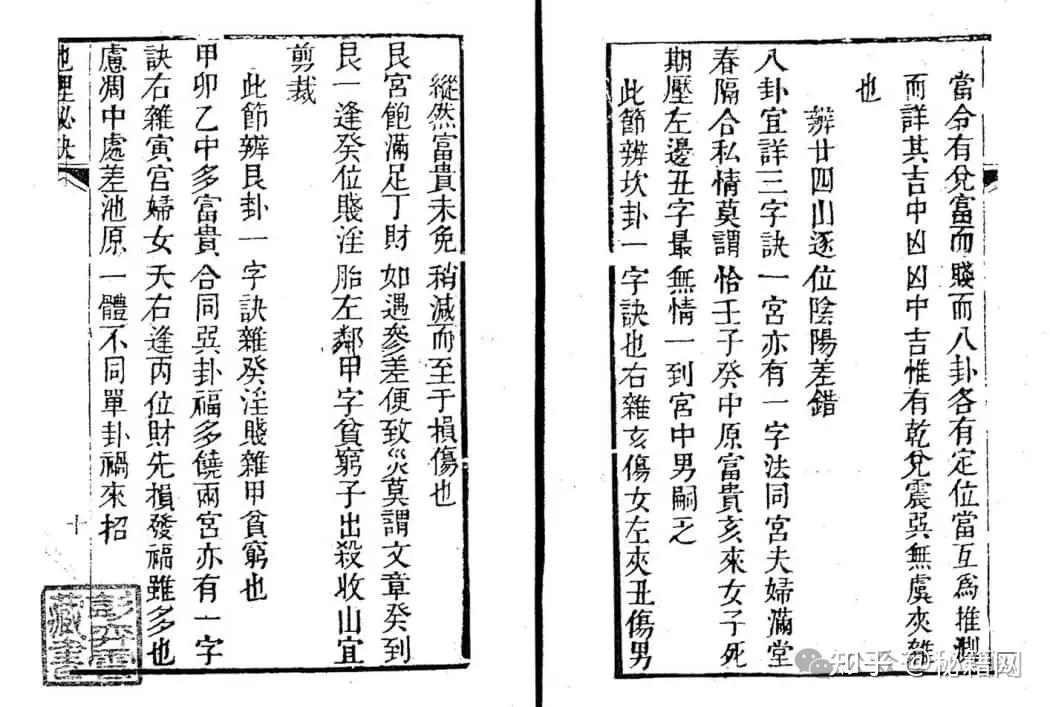 當令有兌富而賤而八卦各有定位當互爲推測
而詳其吉中凶凶中吉惟有乾兌震巽無虞夾雜
也
辨廿四山逐位陰陽差錯
八卦宜詳三字訣一宮亦有一字法同宮夫婦滿堂
春隔合私情莫謂恰壬子癸中原富貴亥來女子死
期壓左邊丑字最無情一到宮中男嗣乏
此節辨坎卦一字訣也右雜亥傷女左夾丑傷男
縱然富貴未免稍減而至于損傷也
艮宮飽滿足丁財如遇參差便致災莫謂文章癸到
艮一逢癸位賤淫胎左鄰甲字貧窮子出殺收山宜
剪裁
此節辨艮卦一字訣雜癸淫賤雜甲貧窮也
甲卯乙中多富貴合同巽卦福多饒兩宮亦有一字
訣右雜寅宮婦女夭右逢丙位財先損發福雖多也
慮凋中處差池原一體不同單卦禍來招
地理秘訣
十
藏書
知乎 @秘籍网